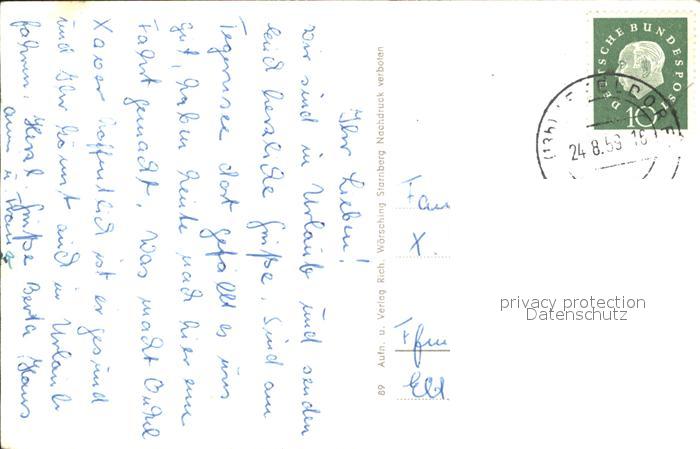 Ihr Lieben!
Wir sind in Urlaub und senden
euch herzliche Grüße. Sind am
Tegernsee dort gefällt es uns
gut, haben heute nach hier eine
Fahrt gemacht. Was macht Onkel
Xaver hoffentlich ist er gesund
und Ihr könnt auch in Urlaub
fahren. Herzl. Grüße Berta Hans
89 Aufn. u. Verlag Rich. Wörsching Starnberg Nachdruck verboten
DEUTSCHE BUNDESPOST
10
24.8.59
Fam
X.
privacy protection
Datenschutz